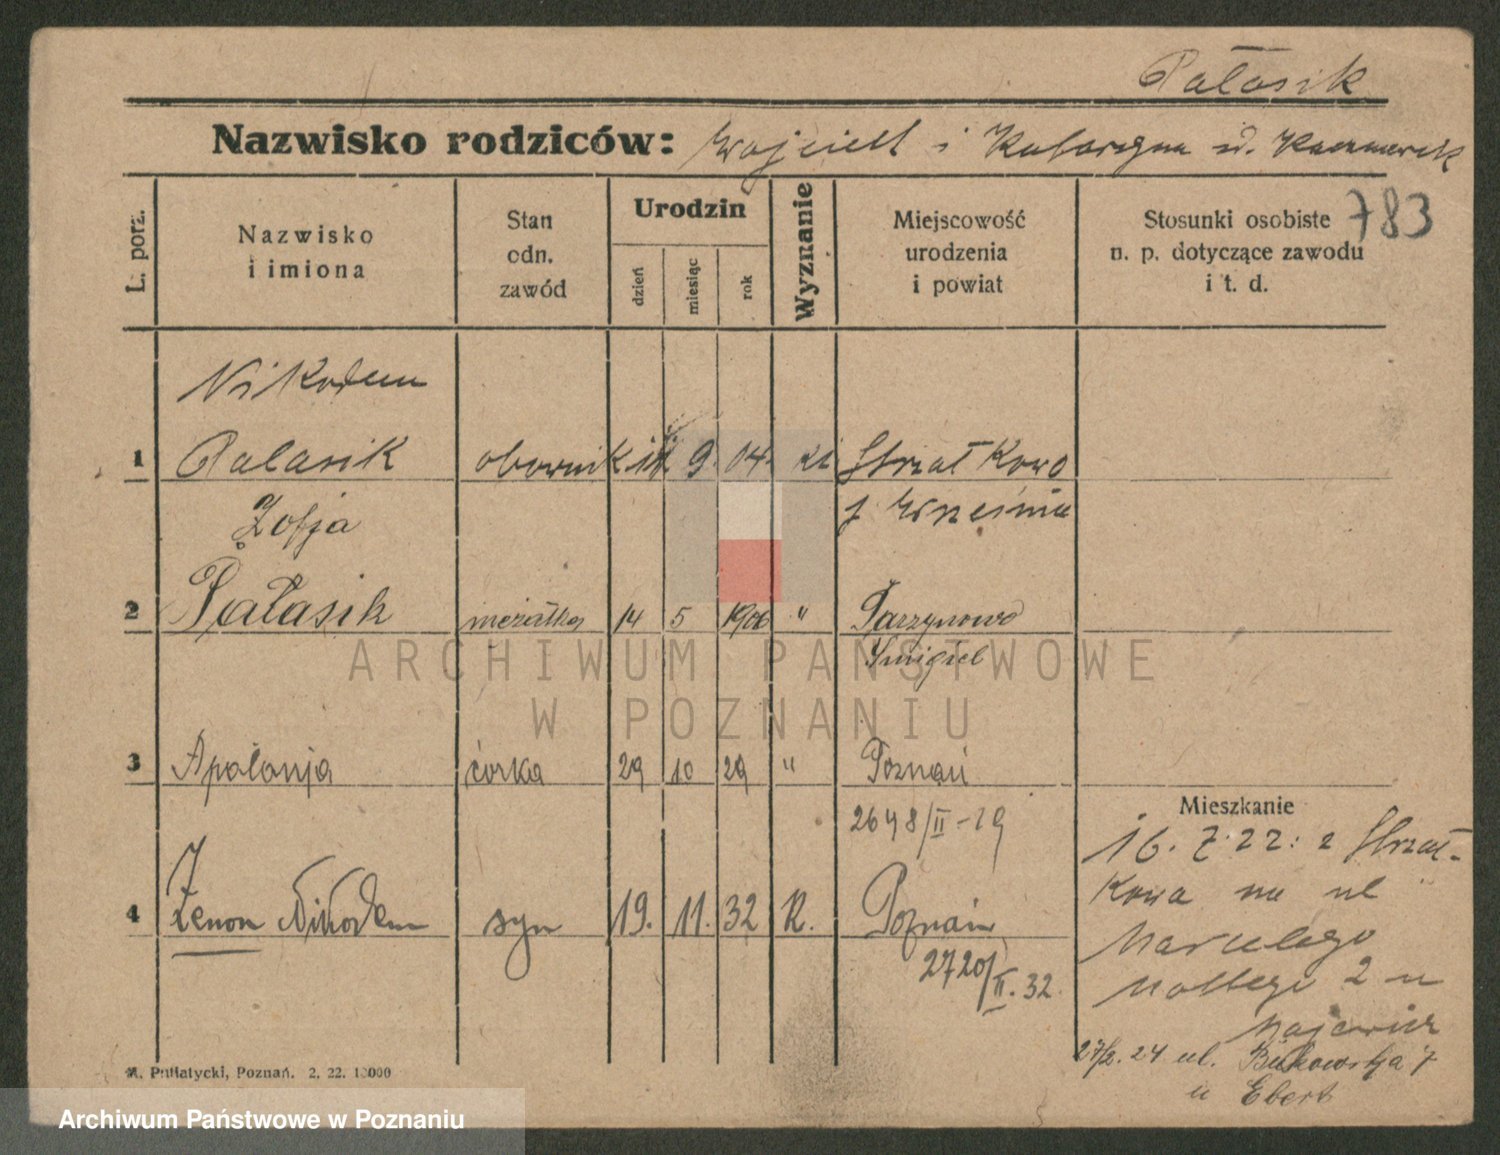 Pałasik
Nazwisko rodziców: Wojciech i Katarzyna d. Kaczmarek
783
L. porz.
Nazwisko
i imiona
Stan
odn.
zawód
Urodzin
dzień
miesiąc
rok
Wyznanie
Miejscowość
urodzenia
i powiat
Stosunki osobiste
n. p. dotyczące zawodu
i t. d.
Nikodem
1 Palasik 9. 04. kt Strzałkowo
Września
Zofja
2 Pałasik mężatka 14 5 1906 " 
Śmigiel
3 Apolonja córka 29 10 29 " Poznań
2648/II-29
Mieszkanie
16. 7. 22: z Strzał-
kowa na ul
4 Zenon Nikodem syn 19. 11. 32 R. Poznań
Marcelego
2720/II. 32.
Mottego 2 u
Majewicz
27/2. 24 ul. Bukowska 7
u Ebert
M. Putiatycki, Poznań. 2. 22. 10000
ARCHIWUM PAŃSTWOWE
W POZNANIU
Archiwum Państwowe w Poznaniu